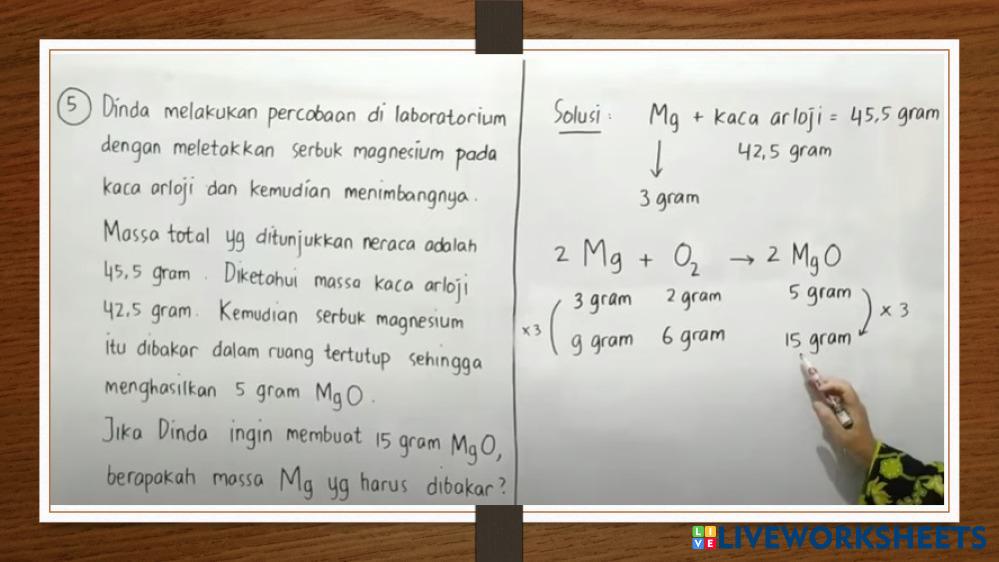 5 Dinda melakukan percobaan di laboratorium
dengan meletakkan serbuk magnesium pada
kaca arloji dan kemudian menimbangnya.
Massa total yg ditunjukkan neraca adalah
45,5 gram. Diketahui massa kaca arloji
42,5 gram. Kemudian serbuk magnesium
itu dibakar dalam ruang tertutup sehingga
menghasilkan 5 gram MgO.
Jika Dinda ingin membuat 15 gram MgO,
berapakah massa Mg yg harus dibakar?
Solusi: Mg + kaca arloji = 45,5 gram
↓ 42,5 gram
3 gram
2 Mg + O₂ → 2 MgO
3 gram 2 gram 5 gram
x3 x3
9 gram 6 gram 15 gram
LIVE LIVEWORKSHEETS